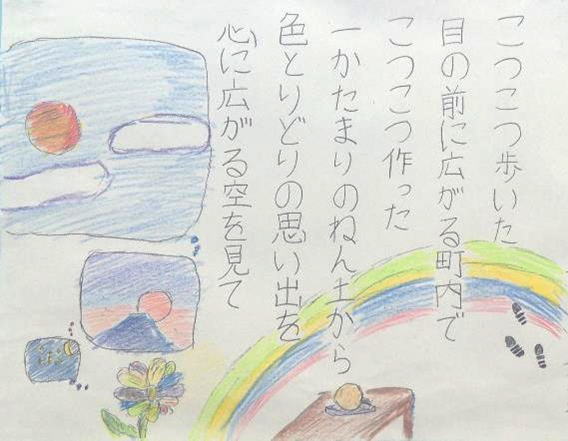 こつこつ歩いた
目の前に広がる町内で
こつこつ作った
一かたまりのねん土から
色とりどりの思い出を
心に広がる空を見て